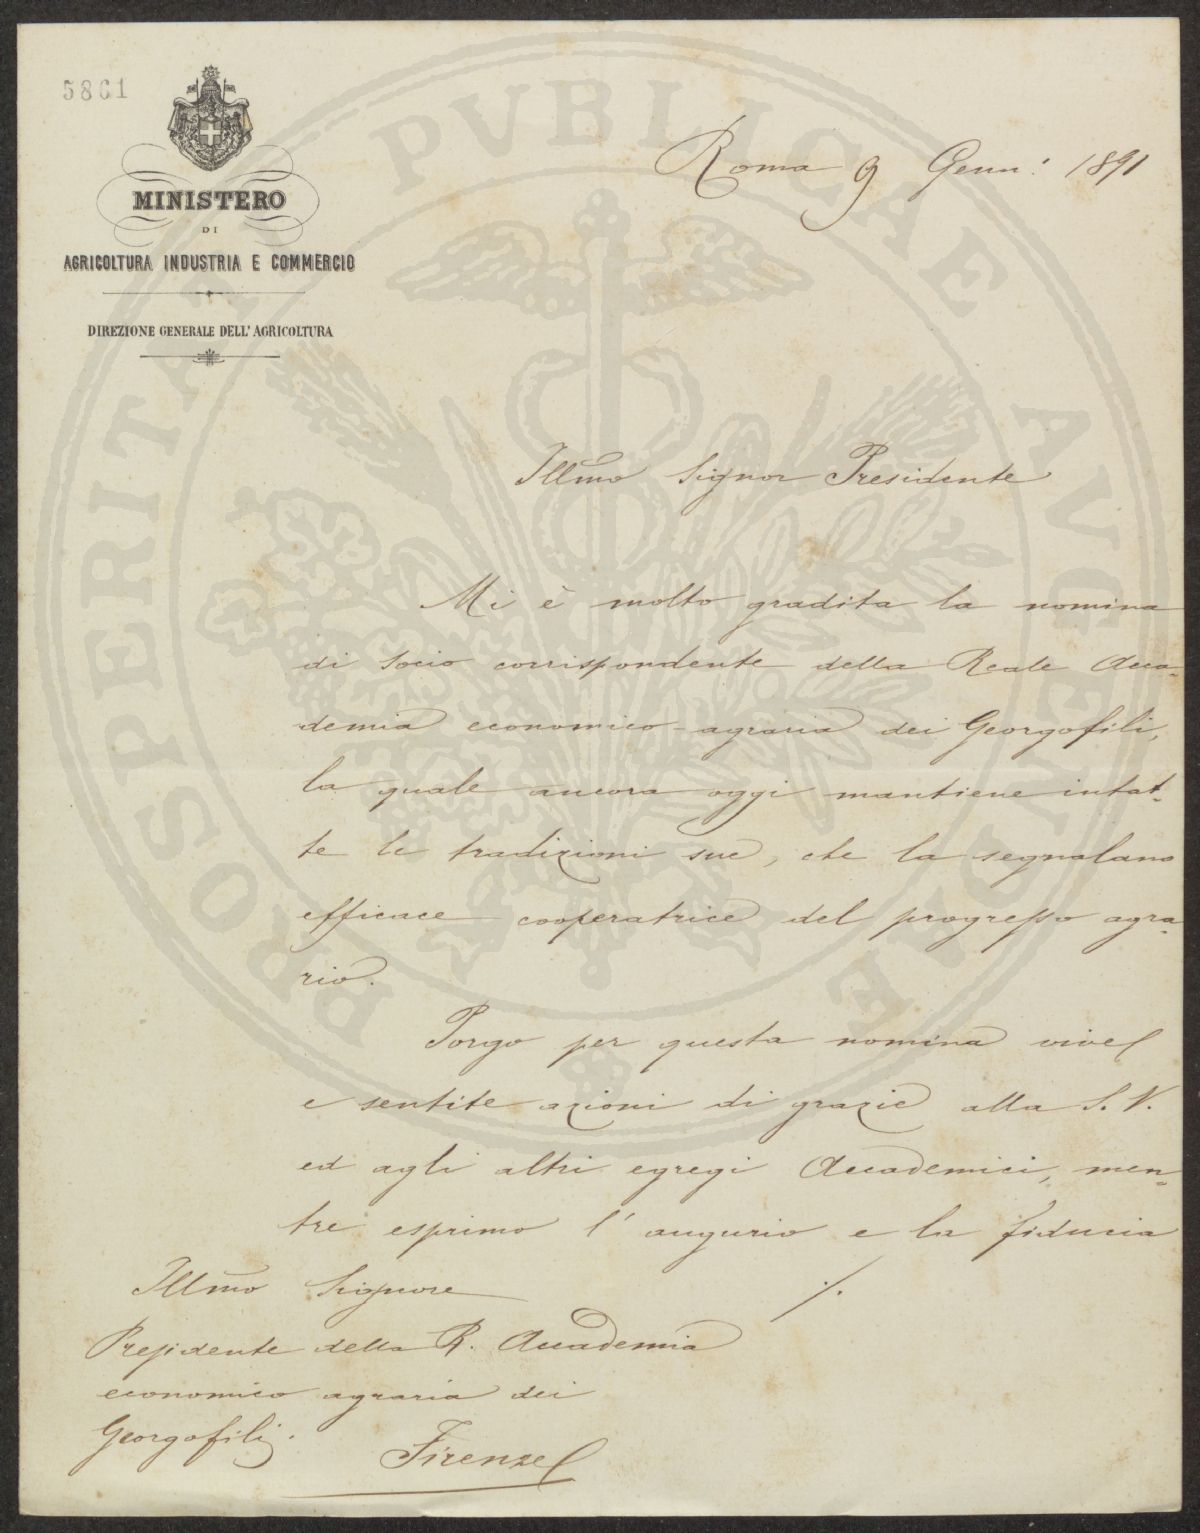 5861
MINISTERO
DI
AGRICOLTURA INDUSTRIA E COMMERCIO
DIREZIONE GENERALE DELL'AGRICOLTURA
Roma 9 Genn: 1891
Illmo Signor Presidente
Mi è molto gradita la nomina
di Socio corrispondente della Reale Acca-
demia economico-agraria dei Georgofili,
la quale ancora oggi mantiene intat-
te le tradizioni sue, che la segnalano
efficace cooperatrice del progresso agra-
rio.
Porgo per questa nomina vive
e sentite azioni di grazie alla S. V.
ed agli altri egregi Accademici, men-
tre esprimo l'augurio e la fiducia
./.
Illmo Signore
Presidente della R. Accademia
economico agraria dei
Georgofili.
Firenze
PROSPERITATI PVBLICAE AVGENDAE